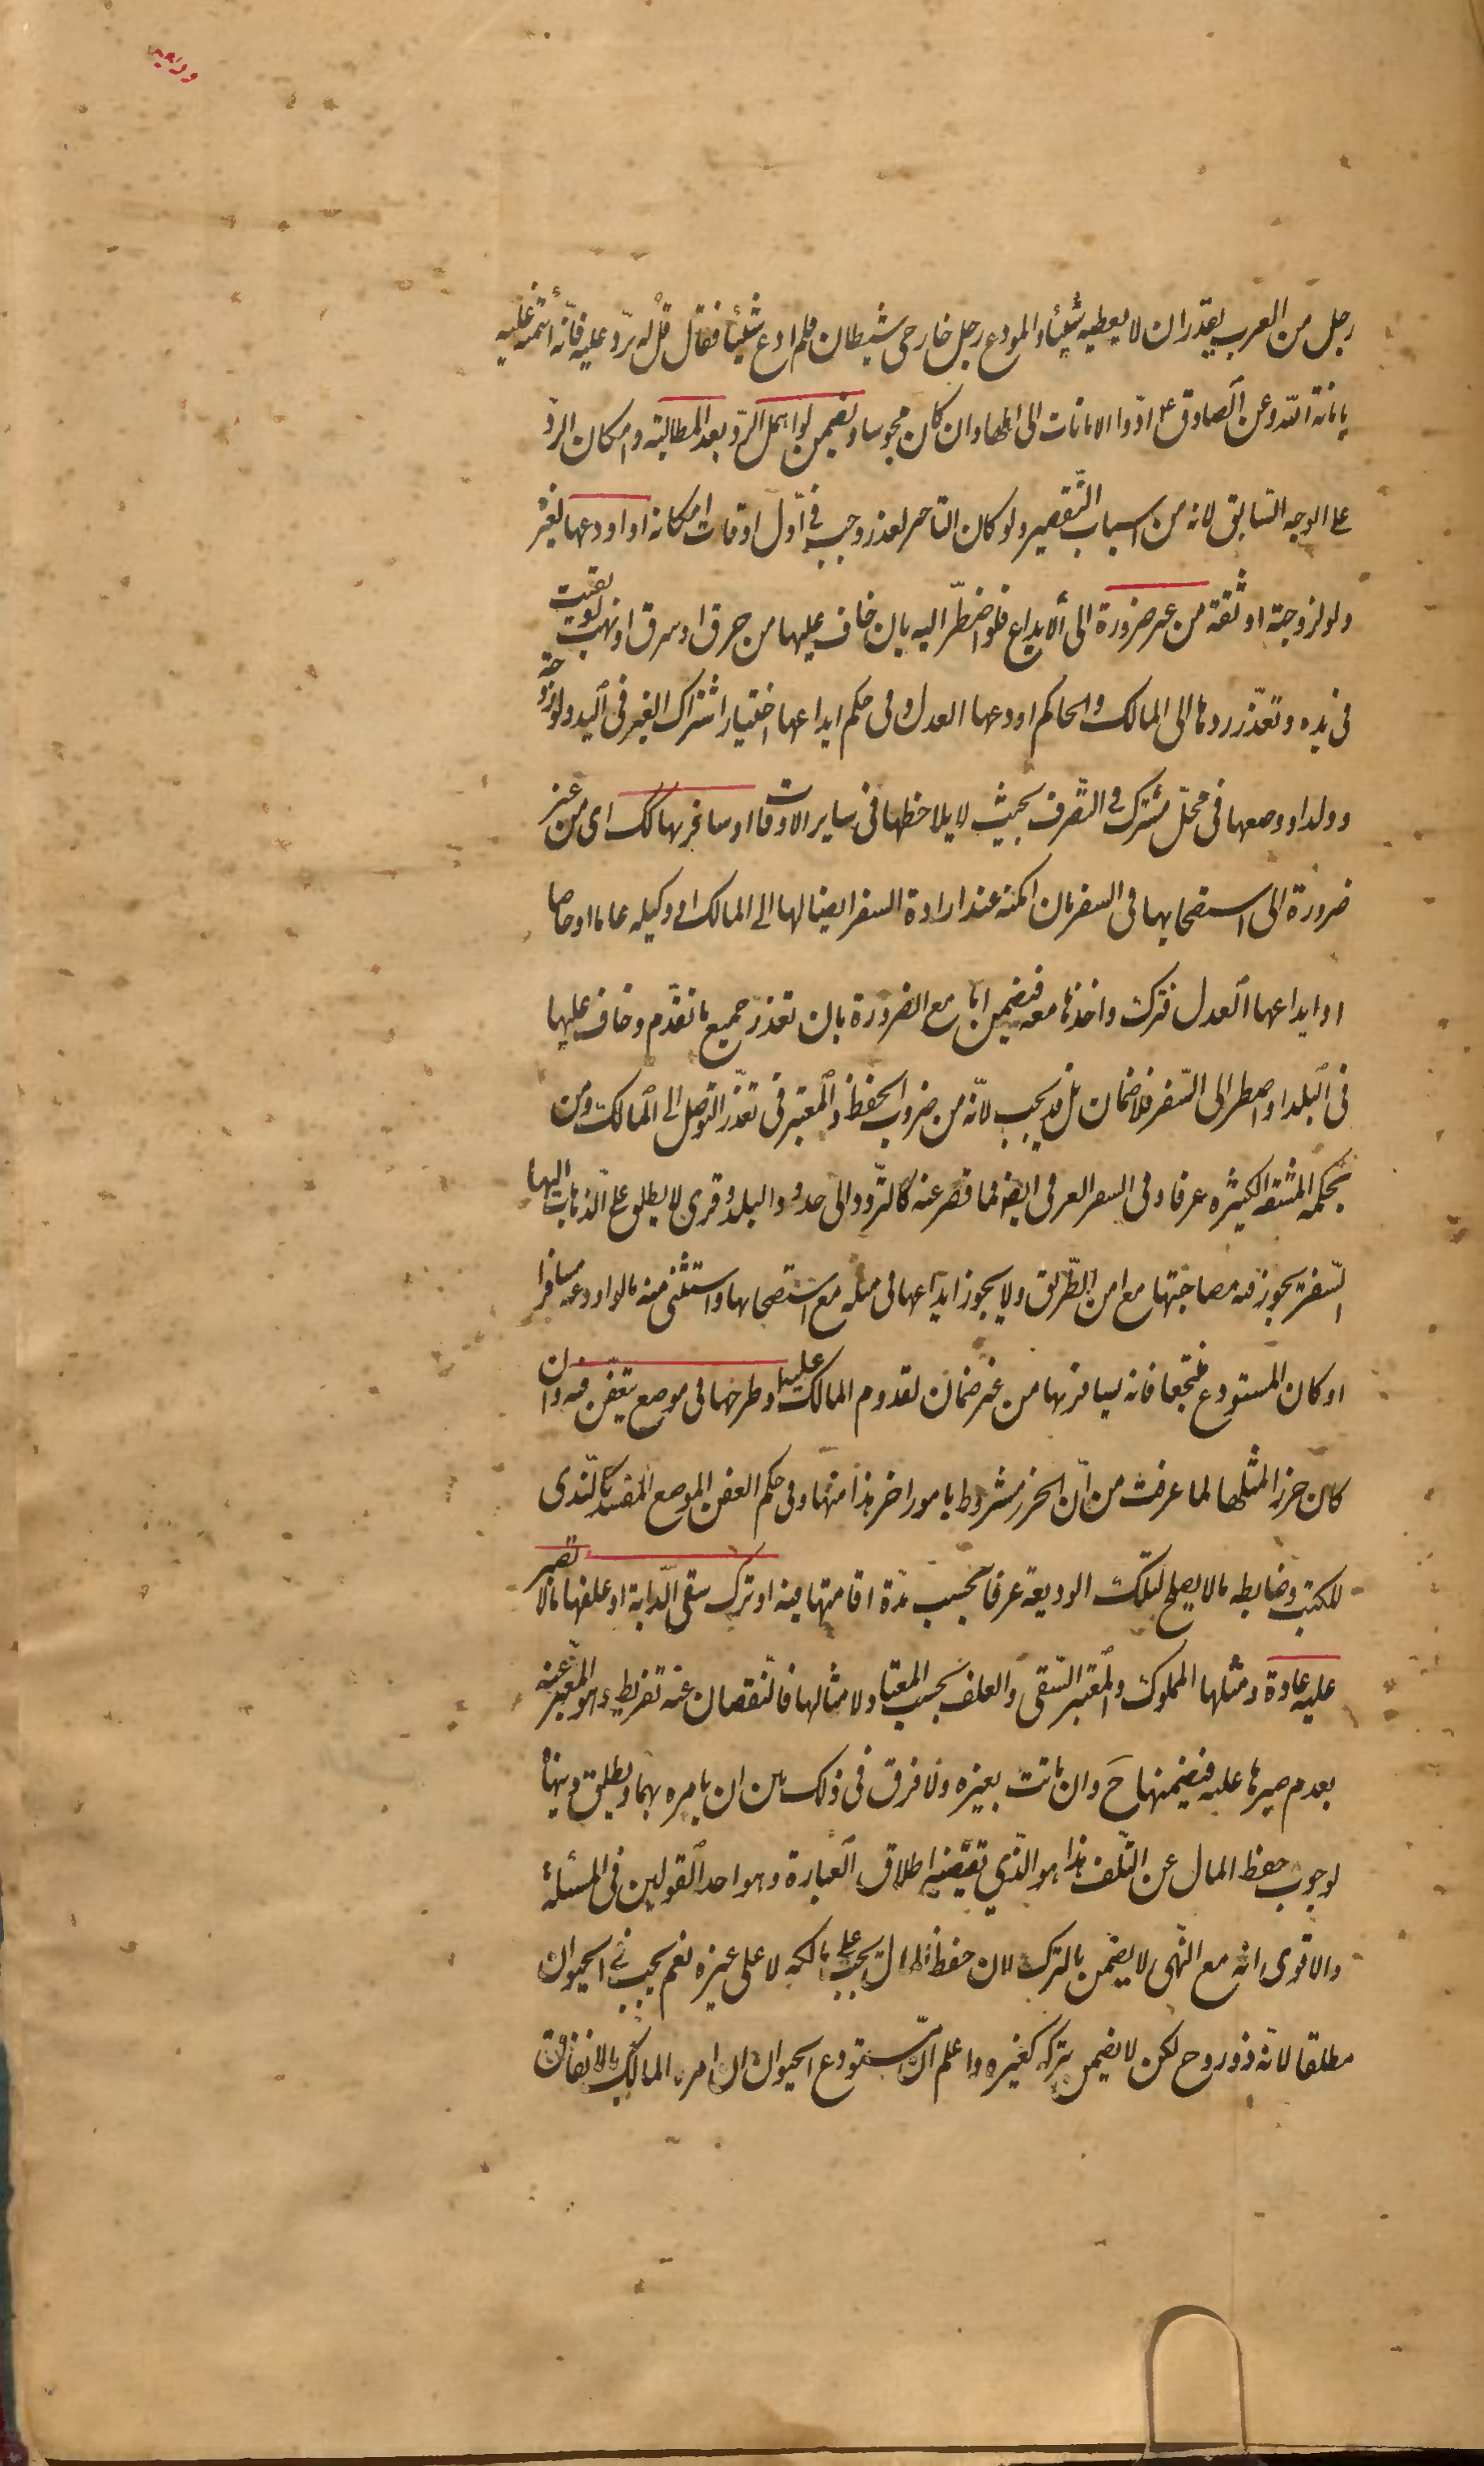 ودیعه
رجل من العرب یقدر ان لا یعطیه شیئا و المودع رجل خارجی شیطان فلم ادع شیئا فقال قل له یردّ علیه فانّه ائتمنه علیه
بامانة اللّه و عن الصادق ع ادّوا الامانات الی اهلها و ان کان مجوسیا و یضمن لو اهمل الردّ بعد المطالبة و امکان الردّ
علی الوجه السّابق لانه من اسباب التّقصیر و لو کان التاخیر لعذر وجب فی اوّل اوقات امکانه او اودعها لغیره
و لو لزوجة او ثقة من غیر ضرورة الی الایداع فلو اضطرّ الیه بان خاف علیها من حرق او سرق او نهب لو بقیت
فی یده و تعذّر ردها الی المالک و الحاکم اودعها العدل و فی حکم ایداعها اختیارا اشتراک الغیر فی الید و لو زوجة
و ولدا و وضعها فی محلّ مشترک فی التّصرف بحیث لا یلاحظها فی سایر الاوقات او سافر بها کک ای من غیر
ضرورة الی استصحابها فی السفر بان امکنه عند ارادة السفر ایصالها الی المالک او وکیله عاما او خاصا
او ایداعها العدل فترک و اخذها معه فیضمن اما مع الضرورة بان تعذر جمیع ما تقدّم و خاف علیها
فی البلد او اضطر الی السّفر فلا ضمان بل قد یجب لانّه من ضروب الحفظ و المعتبر فی تعذّر التوصل الی المالک و من
بحکمه المشقة الکثیرة عرفا و فی السفر العرفی ایضا فما قصر عنه کالتّردد الی حدود البلد و قری لا یطلق علی الذهاب الیها
السّفر یجوز فیه مصاحبتها مع امن الطّریق و لا یجوز ایداعها فی مثله مع استصحابها و استثنی منه ما لو اودعه مسافرا
او کان المستودع منتجعا فانه یسافر بها من غیر ضمان لقدوم المالک علیها او طرحها فی موضع یتعفّن فیه و ان
کان حرزا لمثلها لما عرفت من انّ الحرز مشروط بامور اخر هذا منها و فی حکم العفن الموضع المفسد کالنّدی
للکتب و ضابطه ما لا یصلح لتلک الودیعة عرفا بحسب مدّة اقامتها فیه او ترک سقی الدّابة او علفها ما لا تصبر
علیه عادة و مثلها المملوک و المعتبر السّقی و العلف بحسب المعتاد لامثالها فالنّقصان عنه تفریط و هو المعبّر عنه
بعدم صبرها علیه فیضمنها ح و ان ماتت بغیره و لا فرق فی ذلک بین ان یامره بهما و یطلق و ینهاه
لوجوب حفظ المال عن التّلف هذا هو الّذی تقتضیه اطلاق العبارة و هو احد القولین فی المسئلة
و الاقوی انّه مع النّهی لا یضمن بالترک لان حفظ المال یجب علی مالکه لا علی غیره نعم یجب فی الحیوان
مطلقا لانّه ذو روح لکن لا یضمن بترکه کغیره و اعلم انّ مستودع الحیوان ان امره المالک بالانفاق